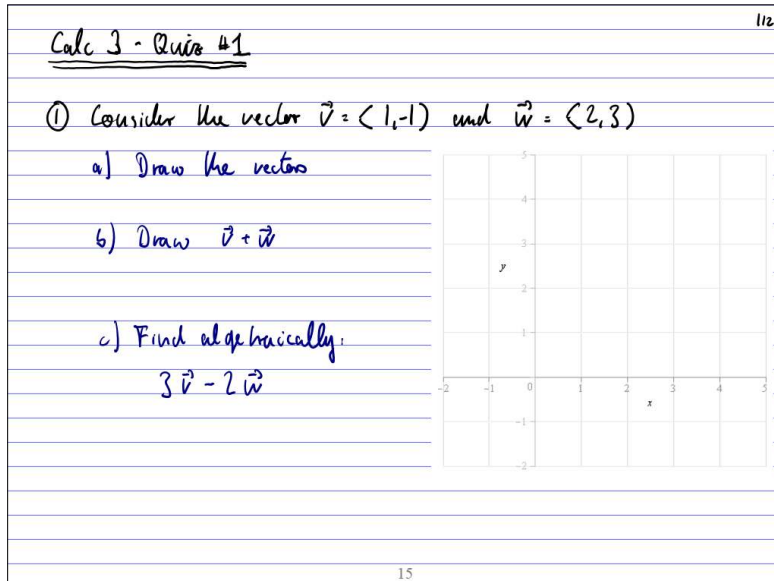 1/2
Calc 3 - Quiz #1
① Consider the vector v⃗ = ⟨1,-1⟩ and w⃗ = ⟨2,3⟩
a) Draw the vectors
b) Draw v⃗ + w⃗
c) Find algebraically:
3v⃗ - 2w⃗
5
4
3
y
2
1
-2 -1 0 1 2 3 4 5
x
-1
-2
15